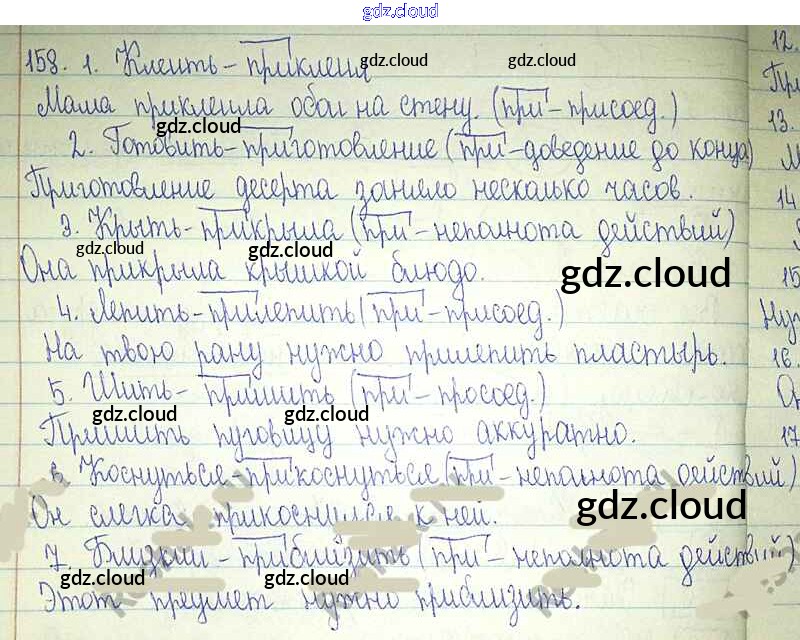 gdz.cloud
158. 1. Клеить - приклеил
gdz.cloud gdz.cloud
Мама приклеила обои на стену. (при - присоед.)
gdz.cloud
2. Готовить - приготовление (при - доведение до конца)
Приготовление десерта заняло несколько часов.
3. Крыть - прикрыла (при - неполнота действий)
gdz.cloud gdz.cloud
Она прикрыла крышкой блюдо.
gdz.cloud
4. Лепить - прилепить (при - присоед.)
На твою рану нужно прилепить пластырь.
5. Шить - пришить (при - просоед.)
gdz.cloud gdz.cloud
Пришить пуговицу нужно аккуратно.
6. Коснуться - прикоснуться (при - неполнота действий)
Он слегка прикоснулся к ней.
gdz.cloud
7. Близкий - приблизить (при - неполнота действий)
gdz.cloud gdz.cloud gdz.cloud
Этот предмет нужно приблизить.
12.
При
13.
М
14
15
Нуж
16.
Он
17